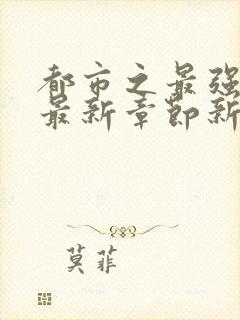 都市之最强
最新章节新
莫菲